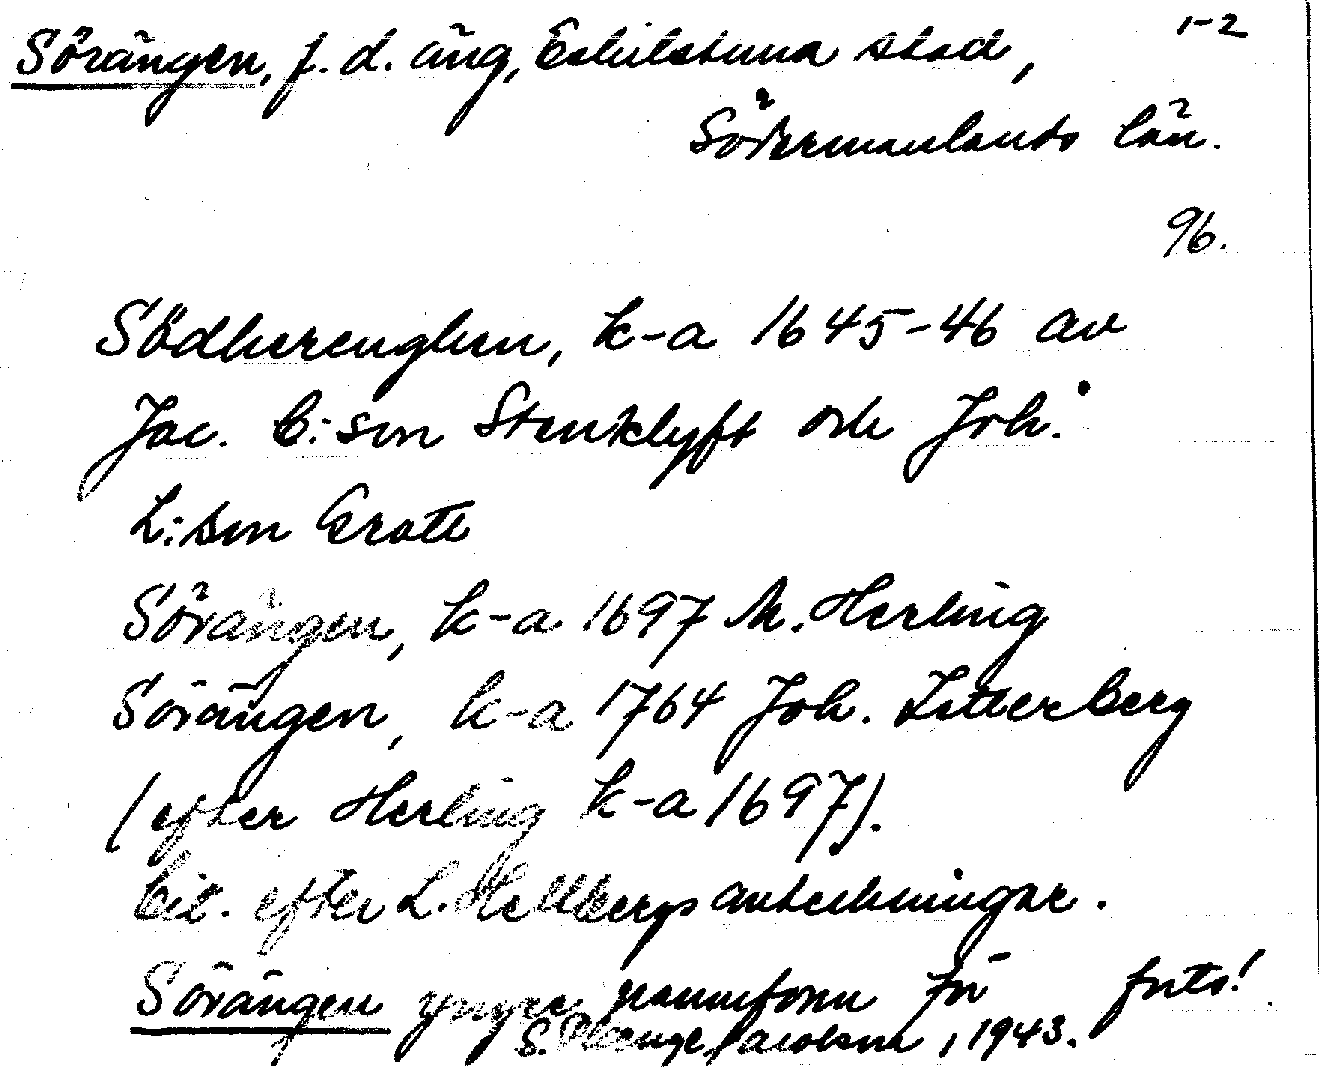 Sörängen, f. d. äng, Eskilstuna stad, 1-2
Södermanlands län.
96.
Södherenghen, k-a 1645-46 av
Jac. C:son Stenklyft och Joh.
L:son Grote
Sörängen, k-a 1697 M. Herling
Sörängen, k-a 1764 Joh. Litterberg
(efter Herling k-a 1697).
Cit. efter L. Hellbergs anteckningar.
Sörängen yngre namnform för forts!
S. Plænge Jacobson, 1943.